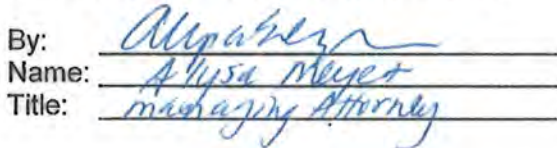 By:
Name: Allysa Meyer
Title: managing Attorney